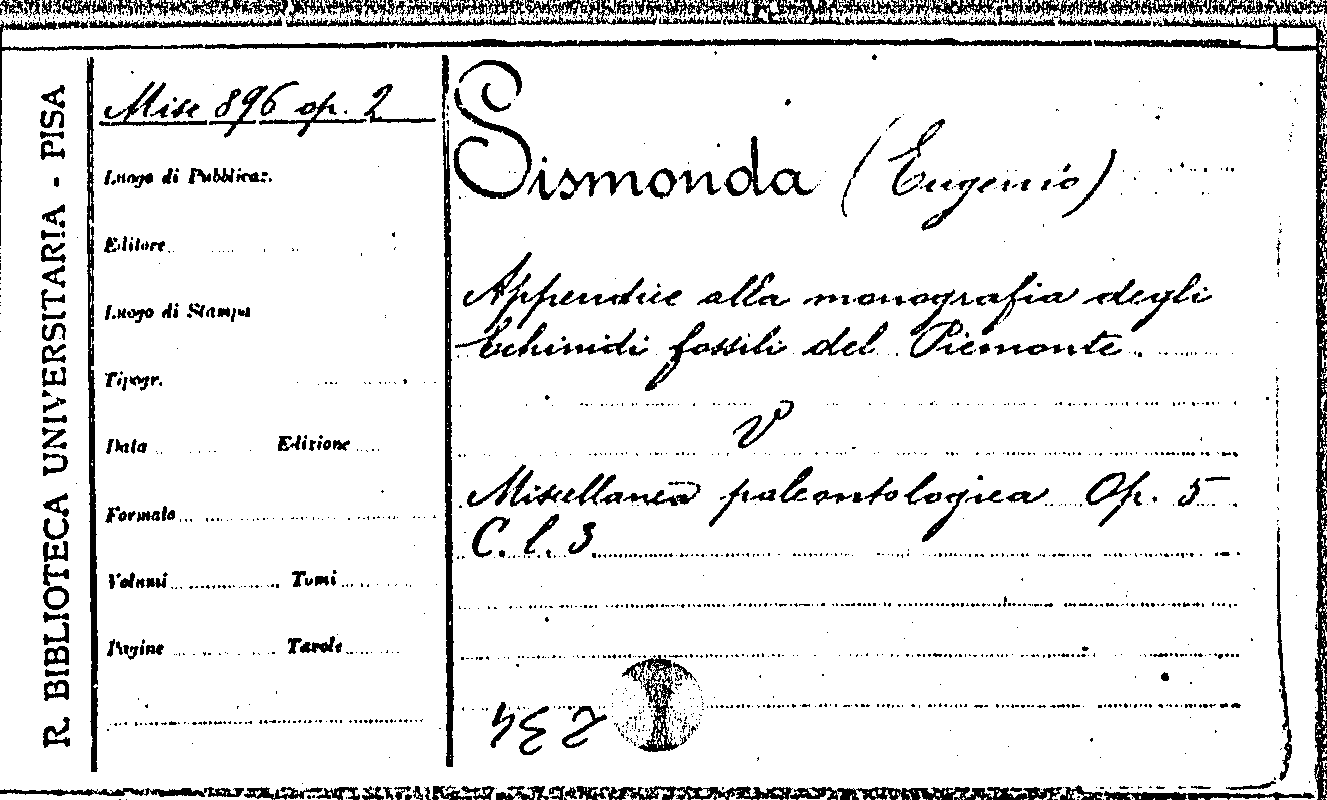 R. BIBLIOTECA UNIVERSITARIA - PISA
Misc 896 op. 2
Luogo di Pubblicaz.
Editore
Luogo di Stampa
Tipogr.
Data Edizione
Formato
Volumi Tomi
Pagine Tavole
Sismonda (Eugenio)
Appendice alla monografia degli
Echinidi fossili del Piemonte.
V
Miscellanea paleontologica Op. 5
C. l. 3
234